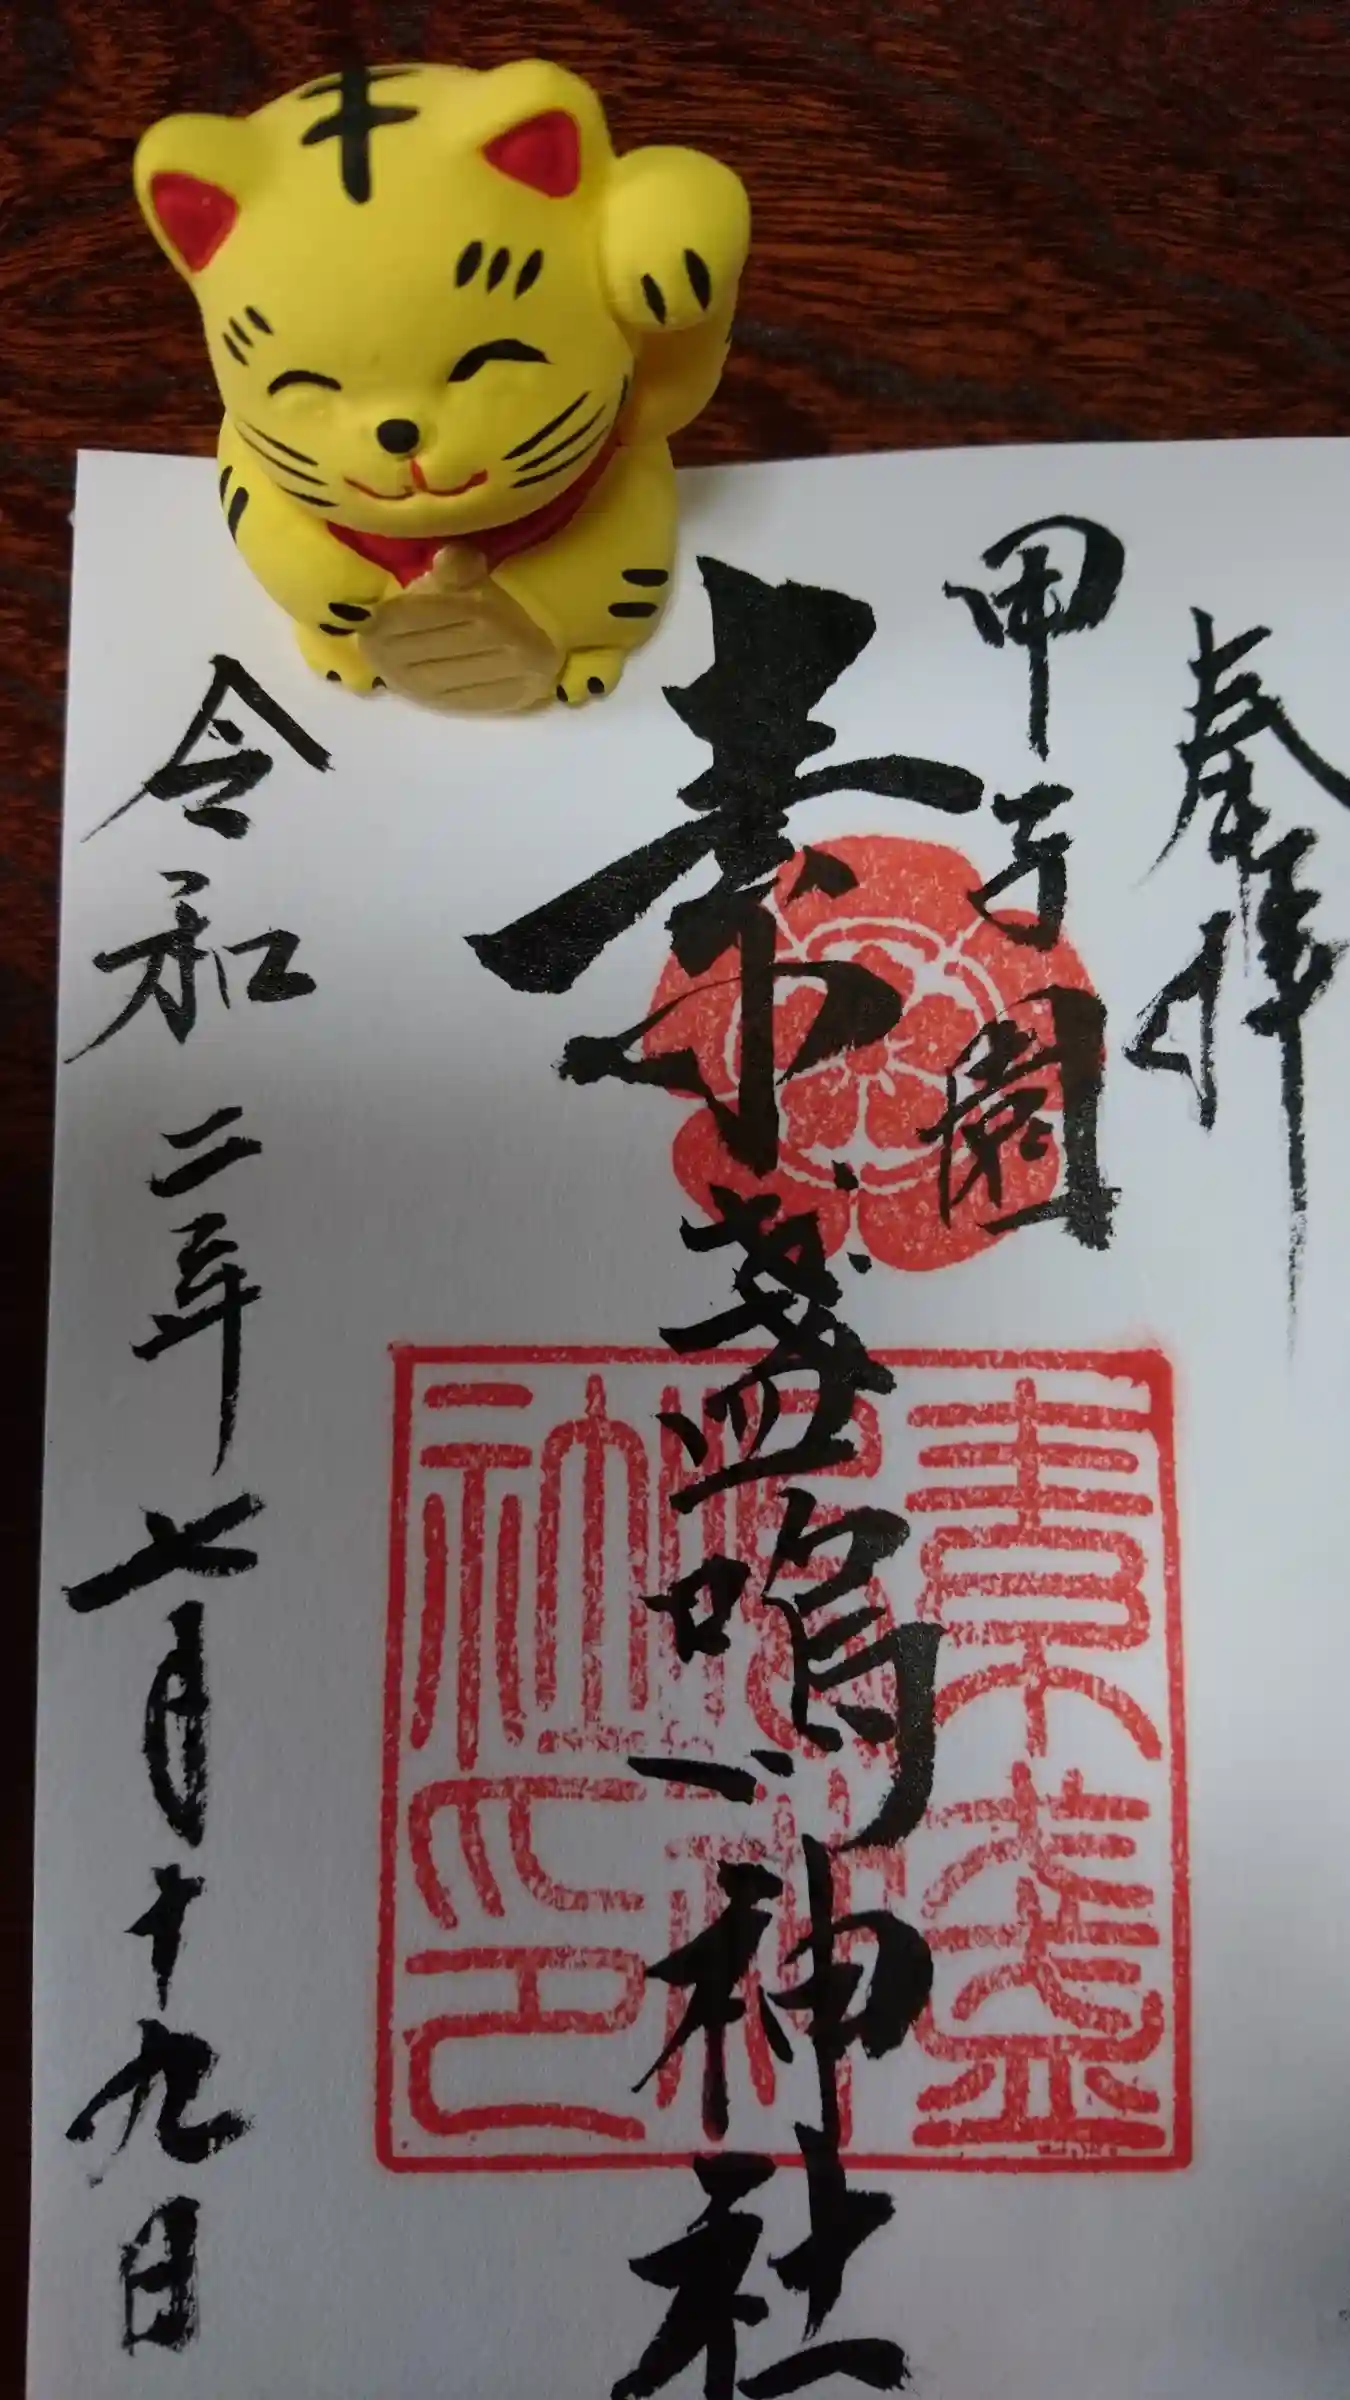 奉拝
甲子園
素盞嗚神社
令和二年七月十九日
素盞
嗚神
社之印